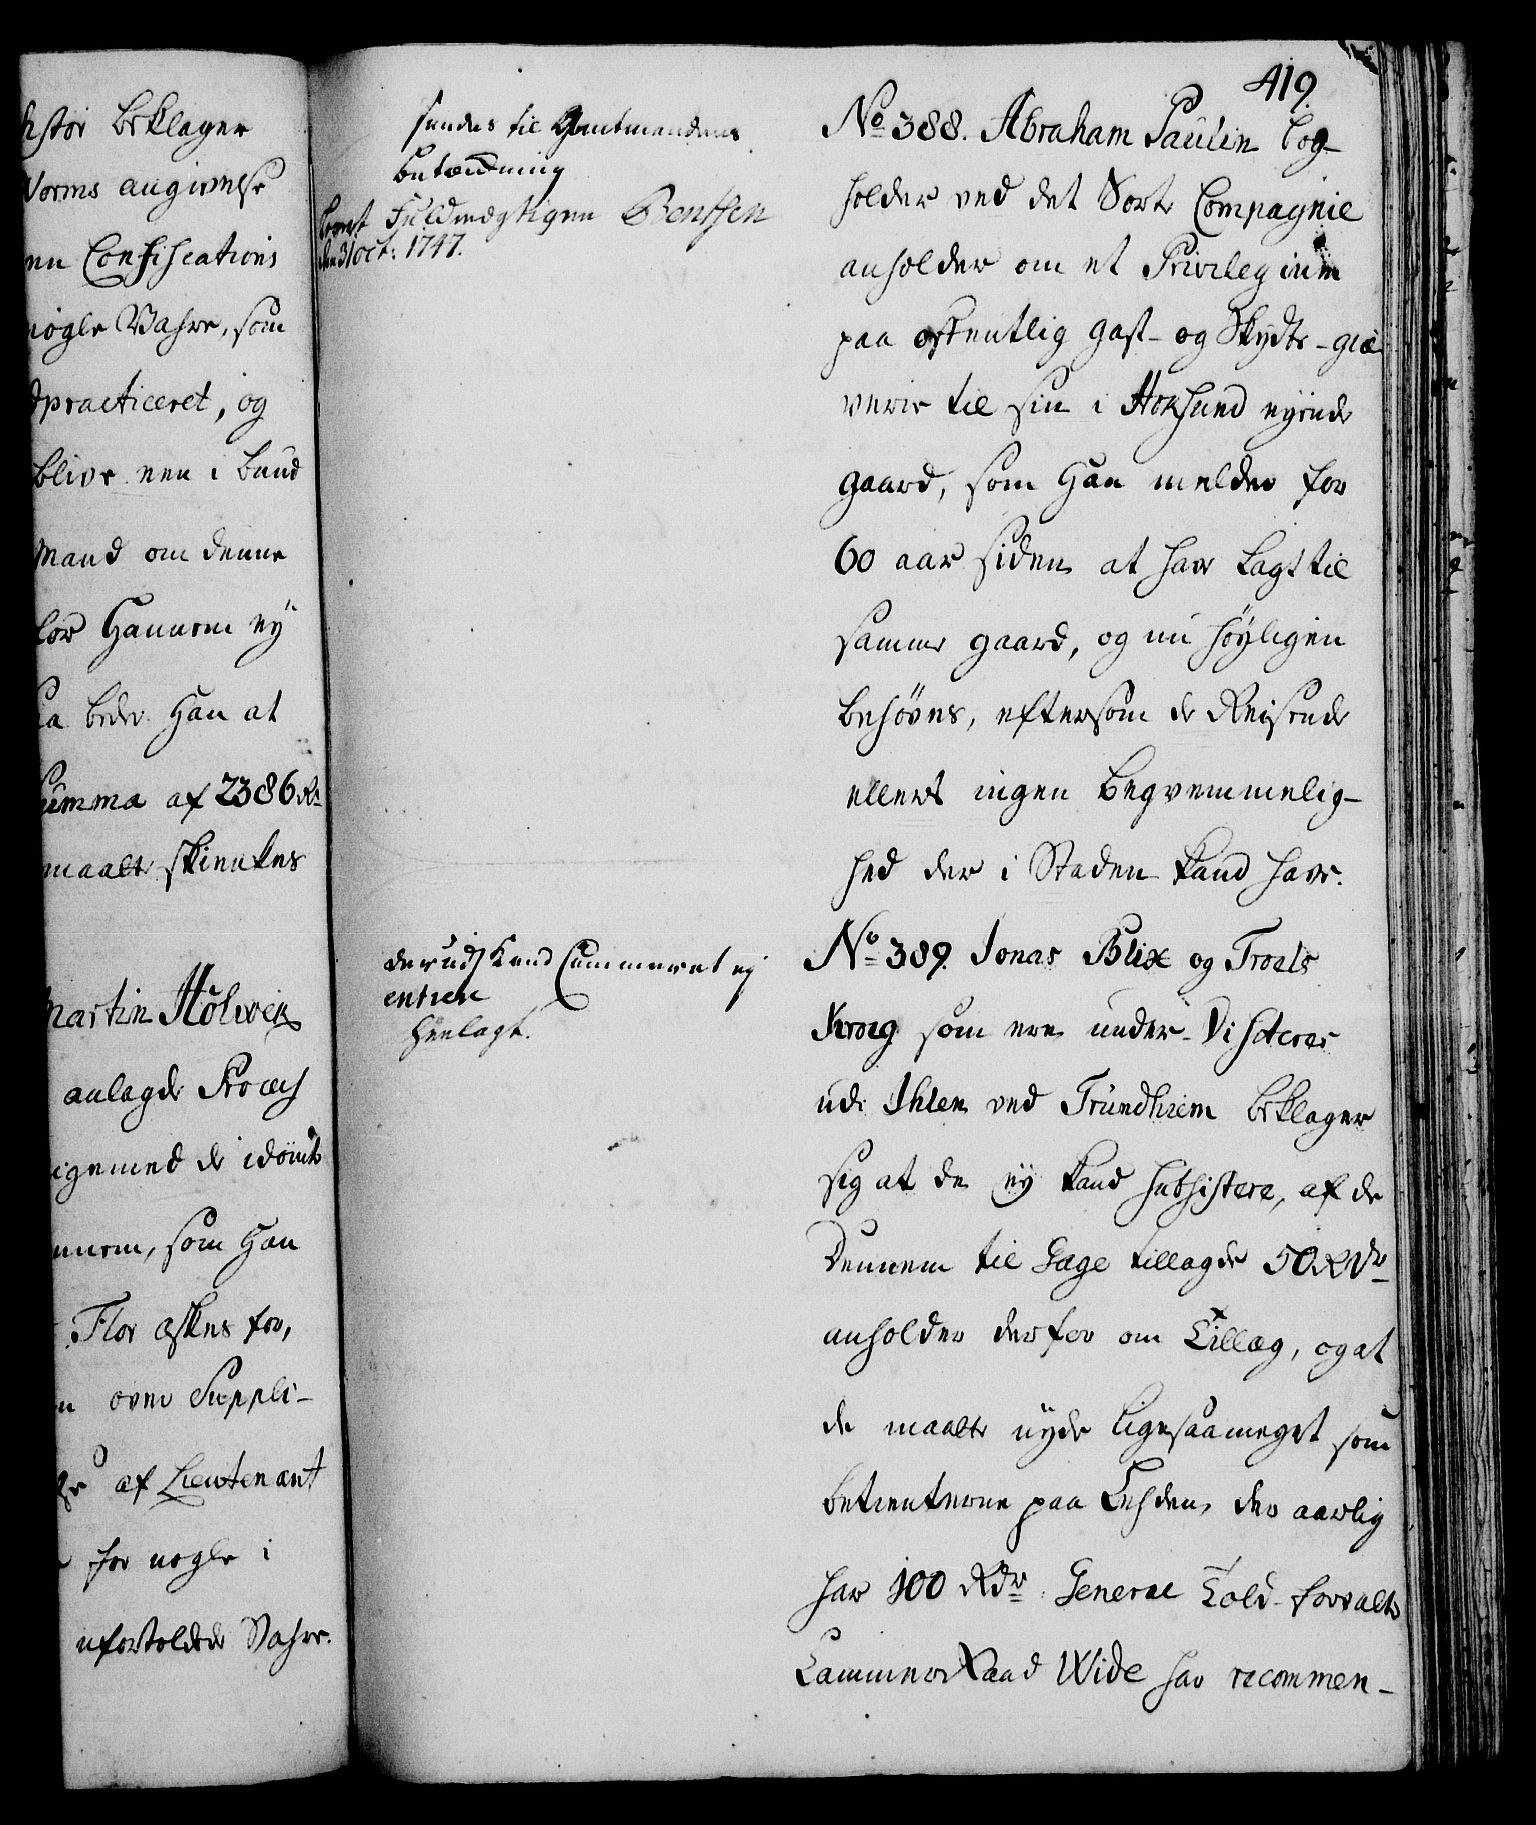 hstor beklager
Worms angivelse
en Confiscations
nogle Vahre, som
dpracticeret, og
blive nen i Baud
Mand om denne
for Hannem ey
saa beder Han at
Summa af 2386 Rd
maatte skienkes
Martin Hölwer
anlagde Process
igemed de idömte
nnem, som Han
Flor æskes for,
n over Suppli-
af Lieutenant
for nogle i
ufortoldede Vahre.
sendes til Hr Amtmandens
betænkning
Levert Fuldmegtigen Bentsen
den 31 Oct: 1747.
derudj kand Cammeret ej
entrere
Henlagt.
419.
No 388. Abraham Paulin Bog-
holder ved det Sorte Compagnie
anholder om et Privilegium
paa offentlig Gast- og Skydts-giæ-
verie til sin i Hoksund eyende
gaard, som Han melder for
60 aar siden at have lagt til
samme gaard, og nu höyligen
behöves, eftersom de Reisende
ellers ingen Beqvemmelig-
hed der i Staden kand have.
No 389. Jonas Blix og Troels
Kroeg som ere under-Visiterer
udi Ihlen ved Trundhiem beklager
sig at de ey kand subsistere, af de
Dennem til Gage tillagde 50 Rdr
anholder derfor om Tillæg, og at
de maatte nyde ligesaameget som
betienterne paa Lehden, der aarlig
har 100 Rdr General Told-forvalter
Cammer Raad Wide har recommen-